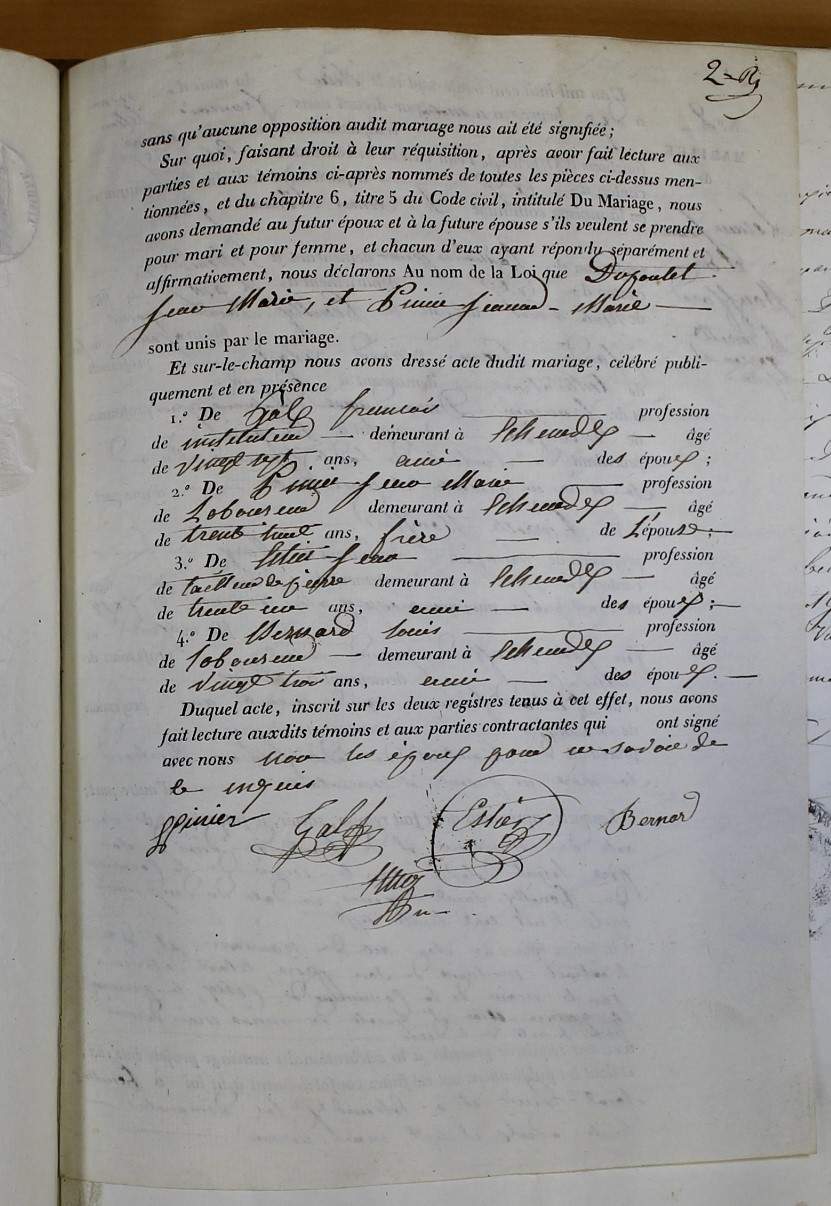 sans qu'aucune opposition audit mariage nous ait été signifiée;
Sur quoi, faisant droit à leur réquisition, après avoir fait lecture aux
parties et aux témoins ci-après nommés de toutes les pièces ci-dessus men-
tionnées, et du chapitre 6, titre 5 du Code civil, intitulé Du Mariage, nous
avons demandé au futur époux et à la future épouse s'ils veulent se prendre
pour mari et pour femme, et chacun d'eux ayant répondu séparément et
affirmativement, nous déclarons Au nom de la Loi que Dufoulet
Jean Marie, et Pinier Jeanne-Marie
sont unis par le mariage.
Et sur-le-champ nous avons dressé acte dudit mariage, célébré publi-
quement et en présence
1.° De Galf francois profession
de instituteur demeurant à age
de vingt sept ans, ami des époux;
2.° De Pinier Jean Marie profession
de Laboureur demeurant à âgé
de trente huit ans, frère de L'épouse;
3.° De Jean profession
de tailleur de pierre demeurant à âgé
de trente un ans, ami des époux;
4.° De Bernard Louis profession
de laboureur demeurant à âgé
de vingt trois ans, ami des époux.
Duquel acte, inscrit sur les deux registres tenus à cet effet, nous avons
fait lecture auxdits témoins et aux parties contractantes qui ont signé
avec nous non les époux pour ne savoir de
ce enquis
Pinier Galf Estier Bernard